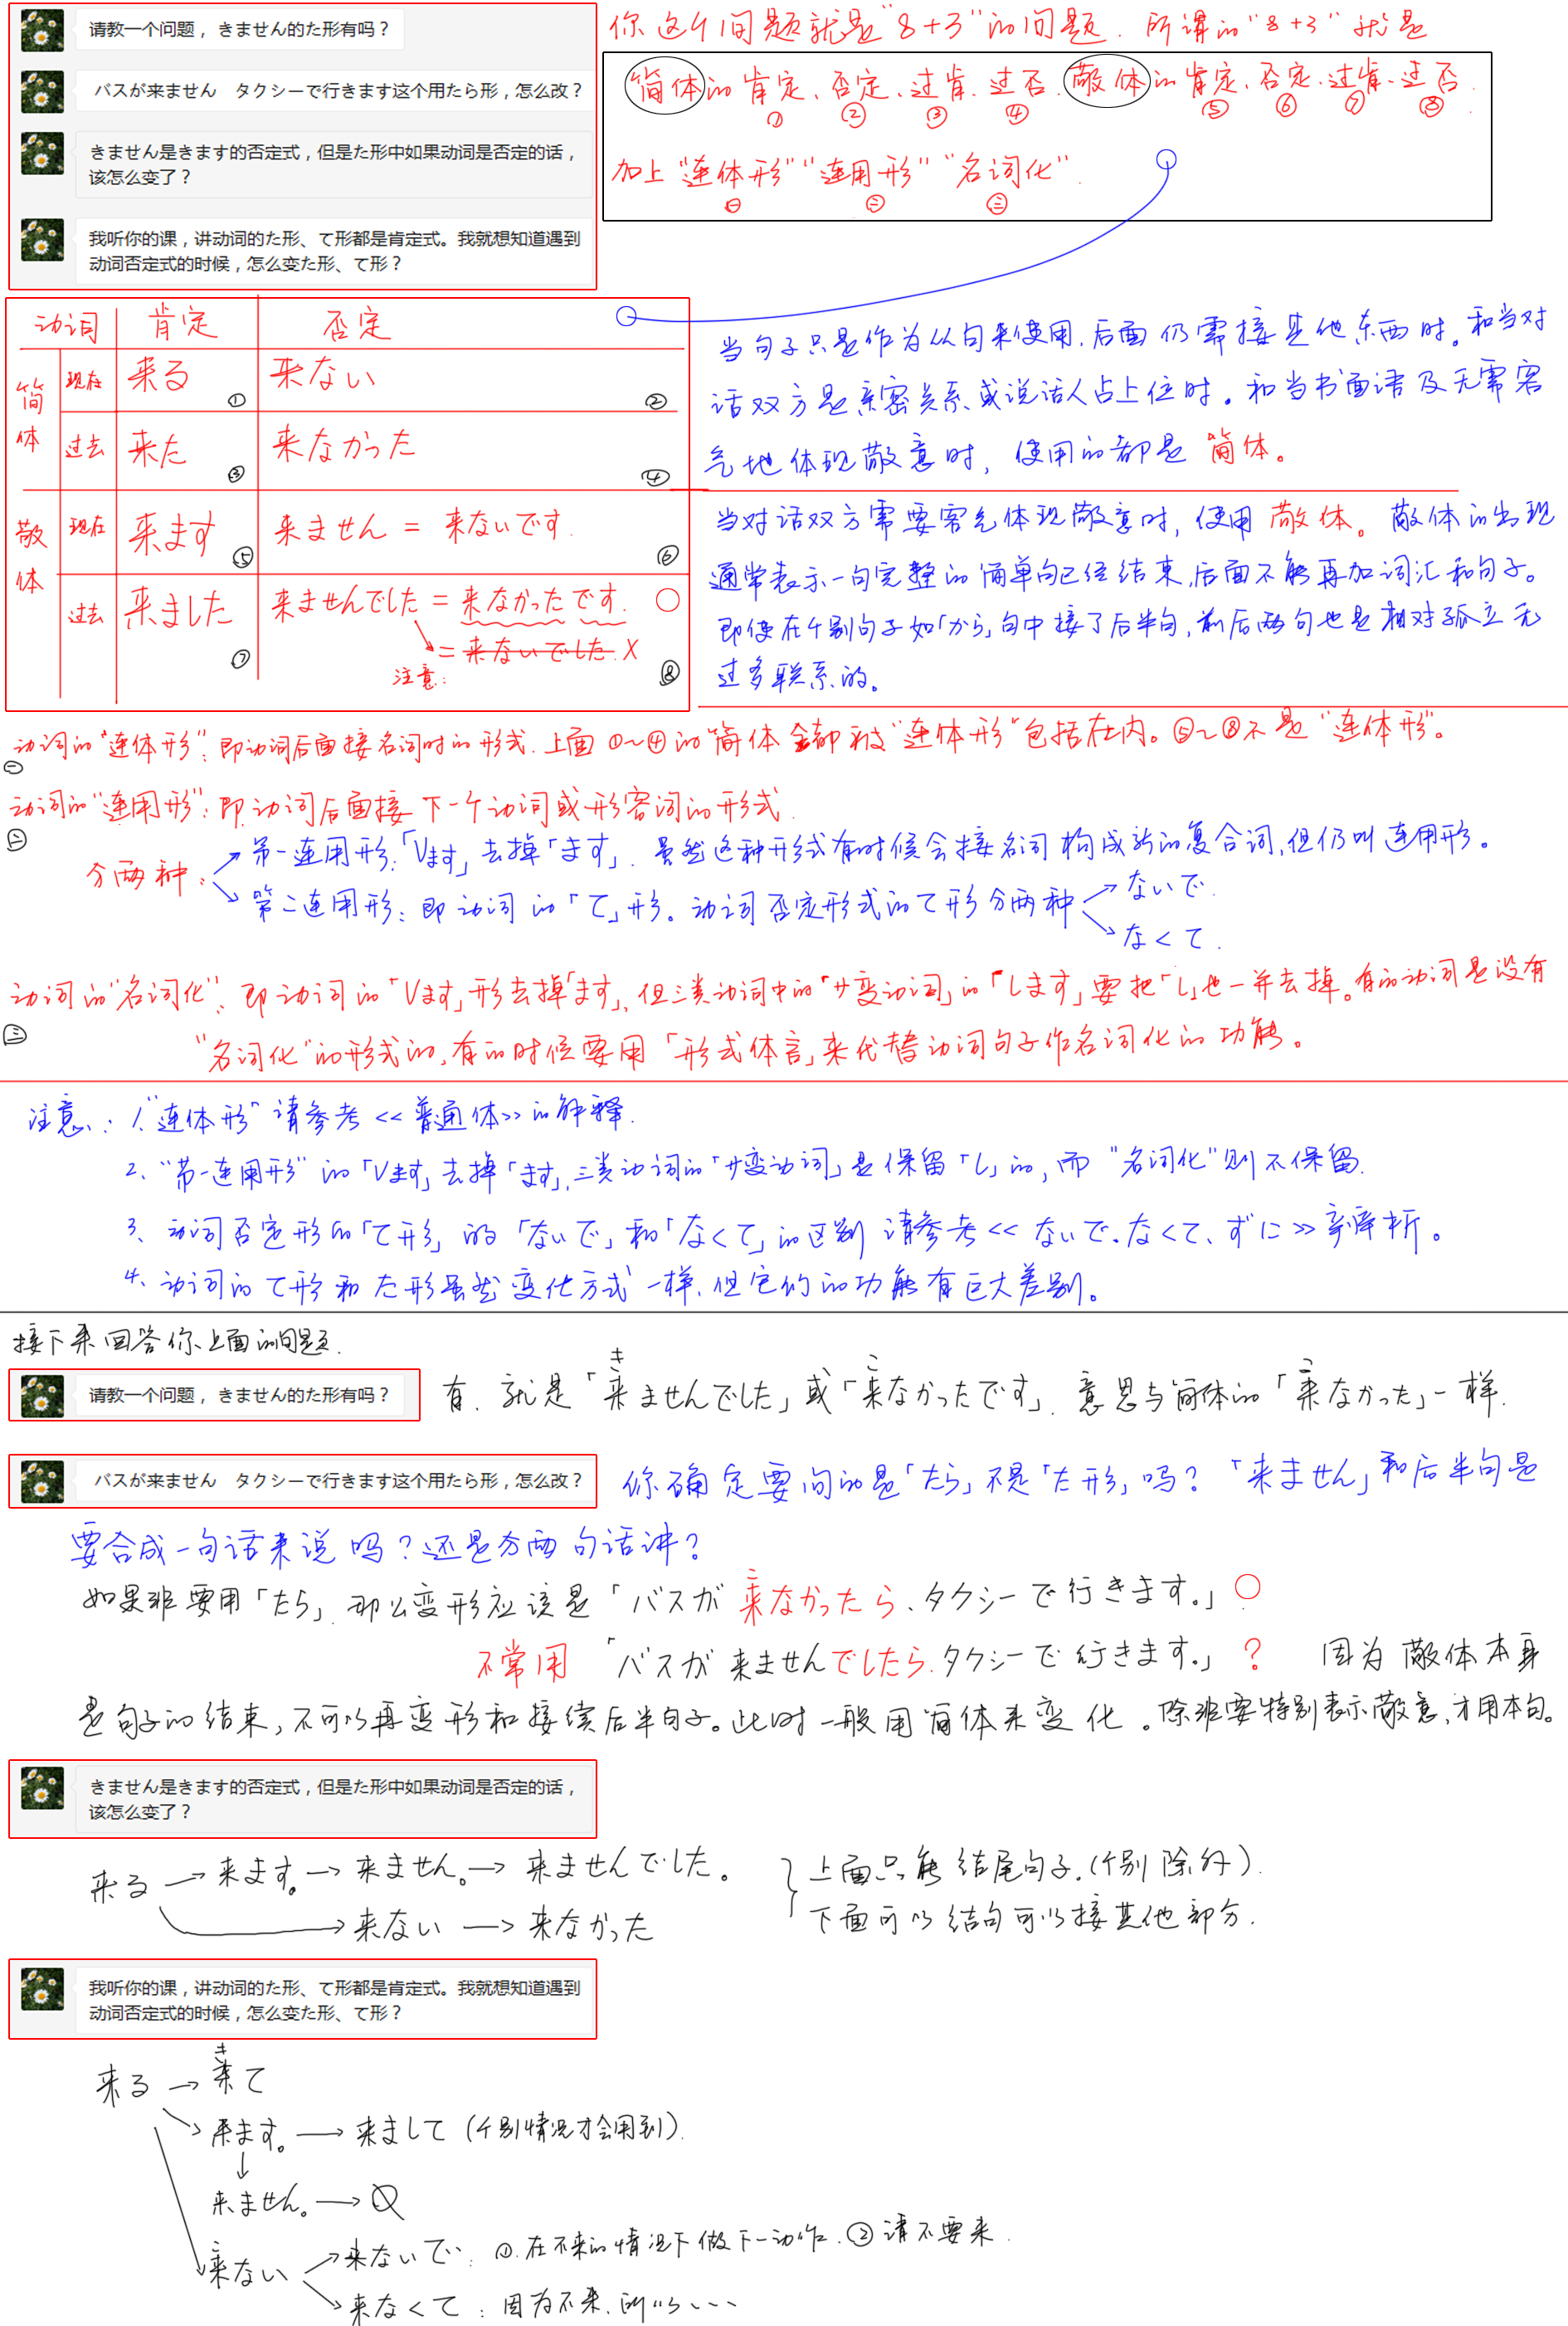 请教一个问题，きません的た形有吗？
バスが来ません　タクシーで行きます这个用たら形，怎么改？
きません是きます的否定式，但是た形中如果动词是否定的话，
该怎么变了？
我听你的课，讲动词的た形、て形都是肯定式。我就想知道遇到
动词否定式的时候，怎么变た形、て形？
你这个问题就是"8+3"的问题. 所谓的"8+3"就是
简体的肯定、否定、过肯、过否. 敬体的肯定、否定、过肯、过否.
① ② ③ ④ ⑤ ⑥ ⑦ ⑧
加上"连体形""连用形""名词化".
㊀ ㊁ ㊂
动词 肯定 否定
简体 现在 来る ① 来ない ②
过去 来た ③ 来なかった ④
敬体 现在 来ます ⑤ 来ません = 来ないです. ⑥
过去 来ました ⑦ 来ませんでした = 来なかったです. ○
注意: = 来ないでした. X ⑧
当句子只是作为从句来使用,后面仍需接其他东西时。和当对
话双方是亲密关系,或说话人占上位时。和当书面语及无需客
气地体现敬意时, 使用的都是 简体。
当对话双方需要客气体现敬意时, 使用 敬体。敬体的出现
通常表示一句完整的简单句已经结束,后面不能再加词汇和句子。
即使在个别句子如「から」句中接了后半句,前后两句也是相对孤立无
过多联系的。
动词的"连体形": 即动词后面接名词时的形式. 上面①~④的简体全都被"连体形"包括在内。⑤~⑧不是"连体形"。
㊀
动词的"连用形": 即动词后面接下一个动词或形容词的形式
㊁
分两种:
第一连用形:「Vます」去掉「ます」. 虽然这种形式有时候会接名词构成新的复合词,但仍叫连用形。
第二连用形: 即动词的「て」形。动词否定形式的て形分两种
ないで.
なくて.
动词的"名词化": 即动词的「Vます」形去掉「ます」,但三类动词中的「サ变动词」的「します」要把「し」也一并去掉。有的动词是没有
㊂
"名词化"的形式的,有的时候要用「形式体言」来代替动词句子作名词化的功能。
注意: 1、"连体形"请参考<<普通体>>的解释.
2、"第一连用形"的「Vます」去掉「ます」,三类动词的「サ变动词」是保留「し」的,而"名词化"则不保留.
3、动词否定形的「て形」的「ないで」和「なくて」的区别 请参考<<ないで、なくて、ずに>>辛解析。
4、动词的て形和た形虽然变化方式一样,但它们的功能有巨大差别。
接下来回答你上面的问题.
请教一个问题，きません的た形有吗？
有. 就是「来(き)ませんでした」或「来(こ)なかったです」. 意思与简体的「来(こ)なかった」一样.
バスが来ません　タクシーで行きます这个用たら形，怎么改？
你确定要问的是「たら」不是「た形」吗？「来ません」和后半句是
要合成一句话来说吗？还是分两句话讲？
如果非要用「たら」. 那么变形应该是「バスが 来(こ)なかったら、タクシーで行きます。」○
不常用「バスが来ませんでしたら.タクシーで行きます。」？ 因为敬体本身
是句子的结束,不可以再变形和接续后半句子。此时一般用简体来变化。除非要特别表示敬意,才用本句。
きません是きます的否定式，但是た形中如果动词是否定的话，
该怎么变了？
来る → 来ます。→ 来ません。→ 来ませんでした。
→ 来ない → 来なかった
上面只能结尾句子.(个别除外).
下面可以结句可以接其他部分.
我听你的课，讲动词的た形、て形都是肯定式。我就想知道遇到
动词否定式的时候，怎么变た形、て形？
来る → 来(き)て
来ます。→ 来まして (个别情况才会用到).
来ません。→
来(こ)ない
来ないで: ①.在不来的情况下做下一动作. ②请不要来.
来なくて: 因为不来、所以...